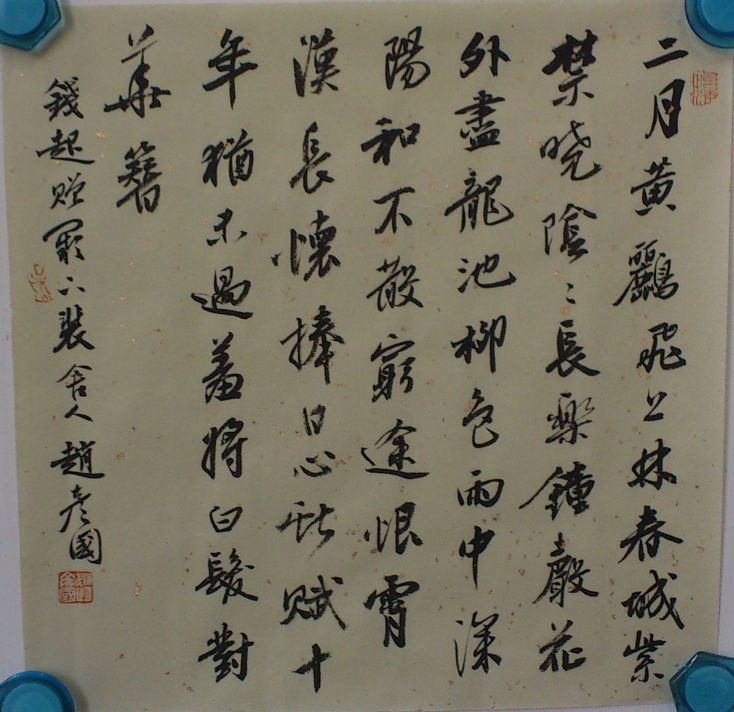 二月黃鸝飛上林春城紫
禁曉陰〻長樂鐘聲花
外盡龍池柳色雨中深
陽和不散窮途恨霄
漢長懷捧日心献赋十
年猶未遇羞將白髮對
華簪
錢起赠闕下裴舍人 趙彥國